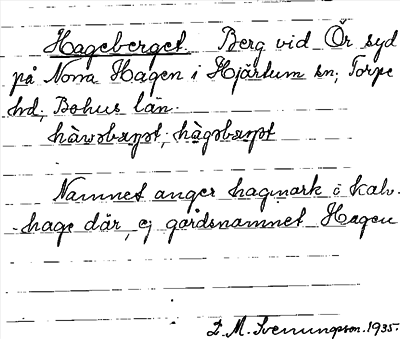 Hageberget. Berg vid Ör syd
på Norra Hagen i Hjärtum sn, Torpe
hd, Bohus län.
Namnet anger hagmark o kalv-
-hage där, ej gårdsnamnet Hagen
S. M. Svenungsson. 1935.